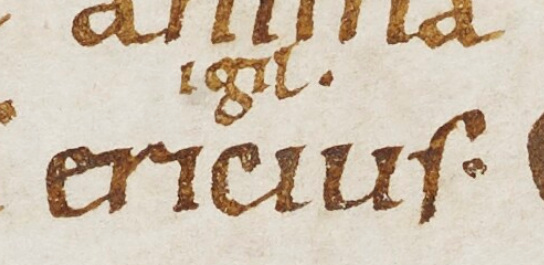 anima
igil.
ericiuſ.